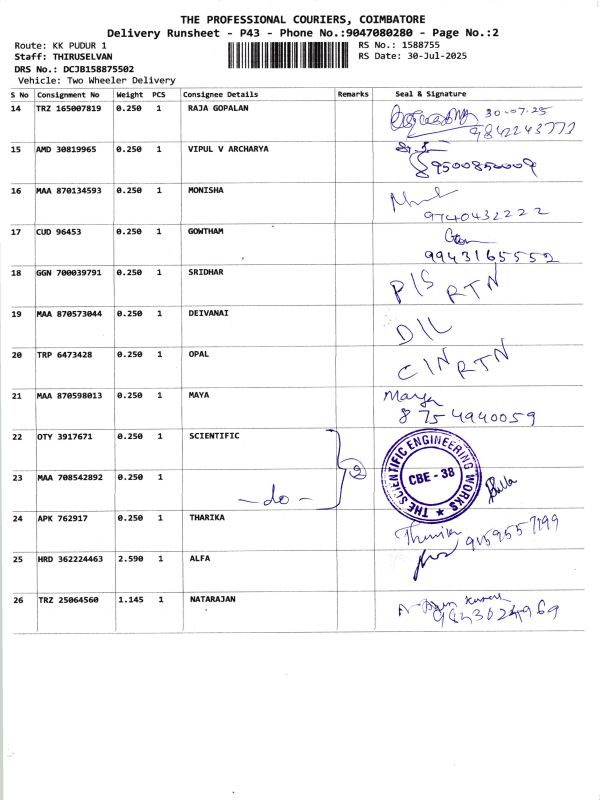 THE PROFESSIONAL COURIERS, COIMBATORE
Delivery Runsheet - P43 - Phone No.:9047080280 - Page No.:2
Route: KK PUDUR 1 RS No.: 1588755
Staff: THIRUSELVAN RS Date: 30-Jul-2025
DRS No.: DCJB158875502
Vehicle: Two Wheeler Delivery
S No Consignment No Weight PCS Consignee Details Remarks Seal & Signature
14 TRZ 165007819 0.250 1 RAJA GOPALAN 30-07-25
9842243777
15 AMD 30819965 0.250 1 VIPUL V ARCHARYA
9500850009
16 MAA 870134593 0.250 1 MONISHA
9740432222
17 CUD 96453 0.250 1 GOWTHAM
9943165552
18 GGN 700039791 0.250 1 SRIDHAR P/S RTN
19 MAA 870573044 0.250 1 DEIVANAI D/L
20 TRP 6473428 0.250 1 OPAL C/N RTN
21 MAA 870598013 0.250 1 MAYA Maya
8754940059
22 OTY 3917671 0.250 1 SCIENTIFIC 2
THE SCIENTIFIC ENGINEERING WORKS ★
CBE - 38
23 MAA 708542892 0.250 1 - do -
24 APK 762917 0.250 1 THARIKA 9159557199
25 HRD 362224463 2.590 1 ALFA
26 TRZ 25064560 1.145 1 NATARAJAN
9843024969